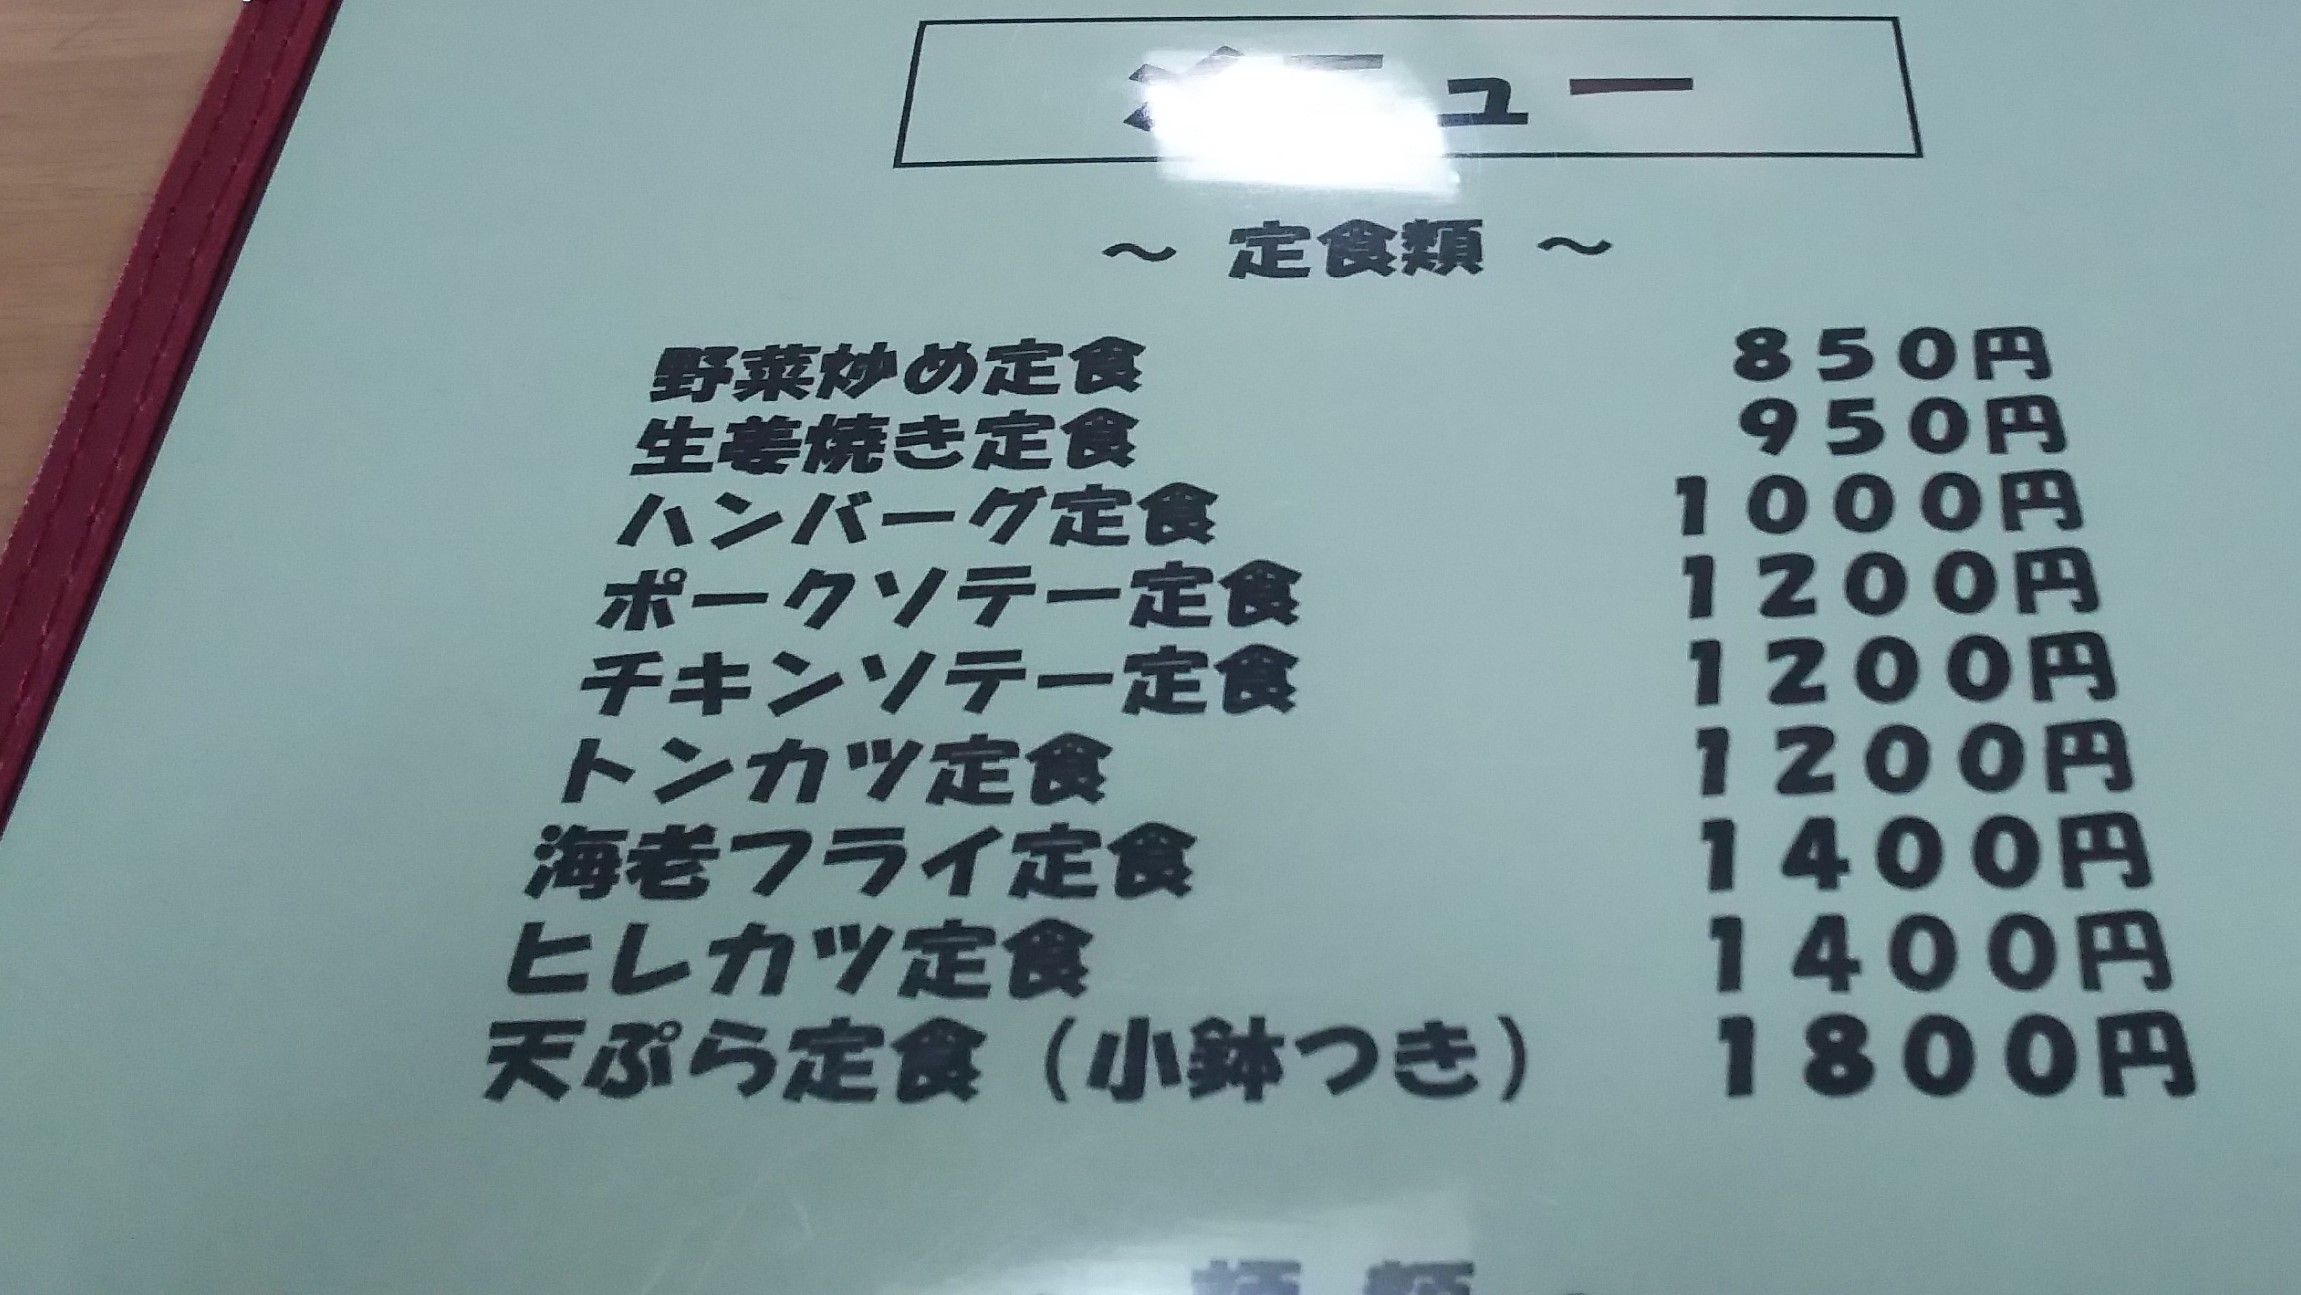 メニュー
～ 定食類 ～
野菜炒め定食 850円
生姜焼き定食 950円
ハンバーグ定食 1000円
ポークソテー定食 1200円
チキンソテー定食 1200円
トンカツ定食 1200円
海老フライ定食 1400円
ヒレカツ定食 1400円
天ぷら定食（小鉢つき） 1800円